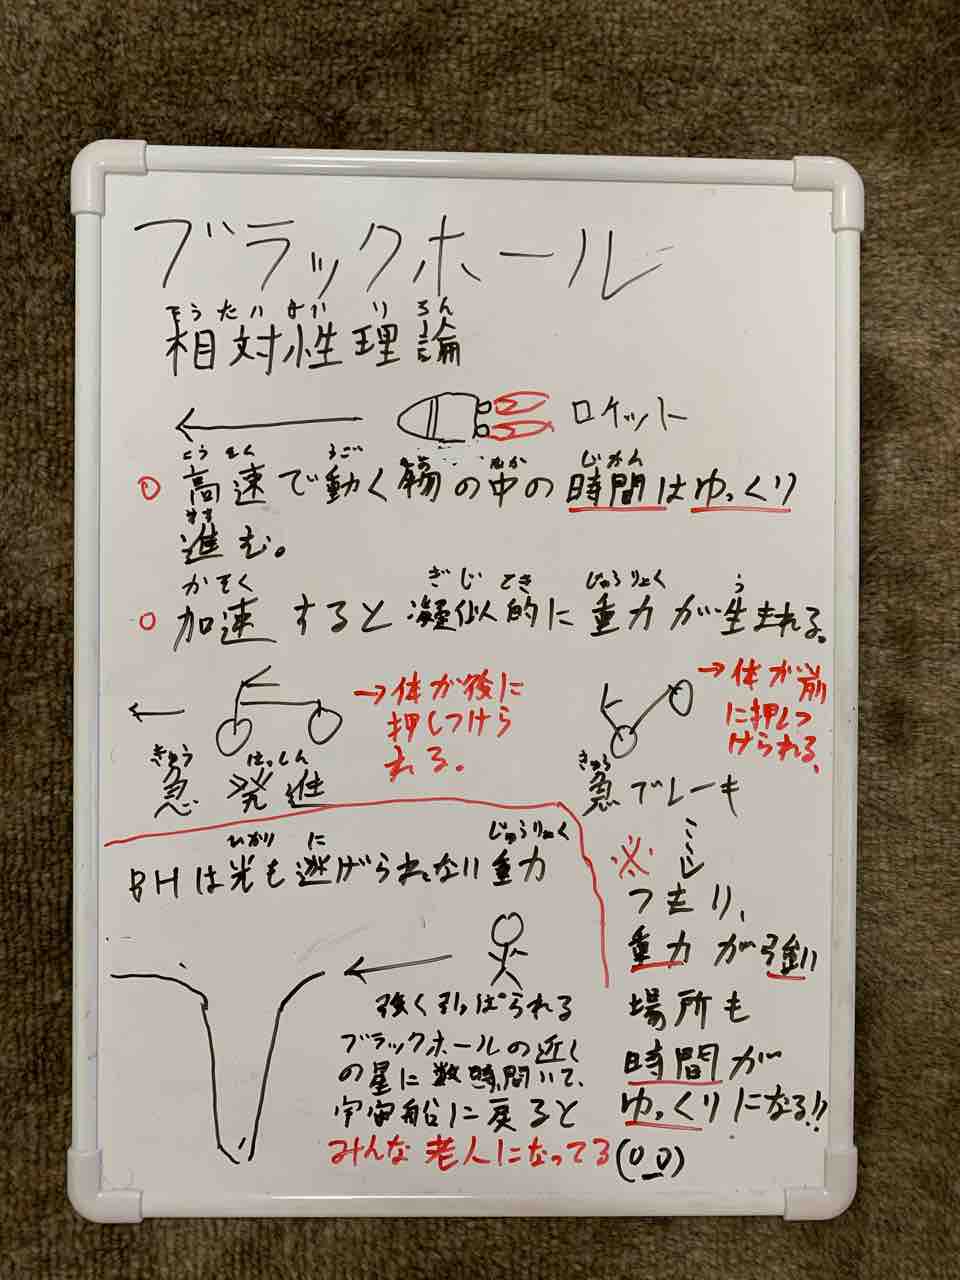 ブラックホール
そうたいせいりろん
相対性理論
ロケット
こうそく うご もの なか じかん
○ 高速で動く物の中の時間はゆっくり
すす
進む。
かそく ぎじてき じゅうりょく う
○ 加速すると凝似的に重力が生まれる。
→体が後に
押しつけら
れる。
きゅう はっしん
急発進
→体が前
に押しつ
けられる。
きゅう
急ブレーキ
ひかり に じゅうりょく
BHは光も逃げられない重力
強く引っぱられる
ブラックホールの近く
の星に数時間いて、
宇宙船に戻ると
みんな老人になってる(0_0)
※
つまり、
重力が強い
場所も
時間が
ゆっくりになる!!